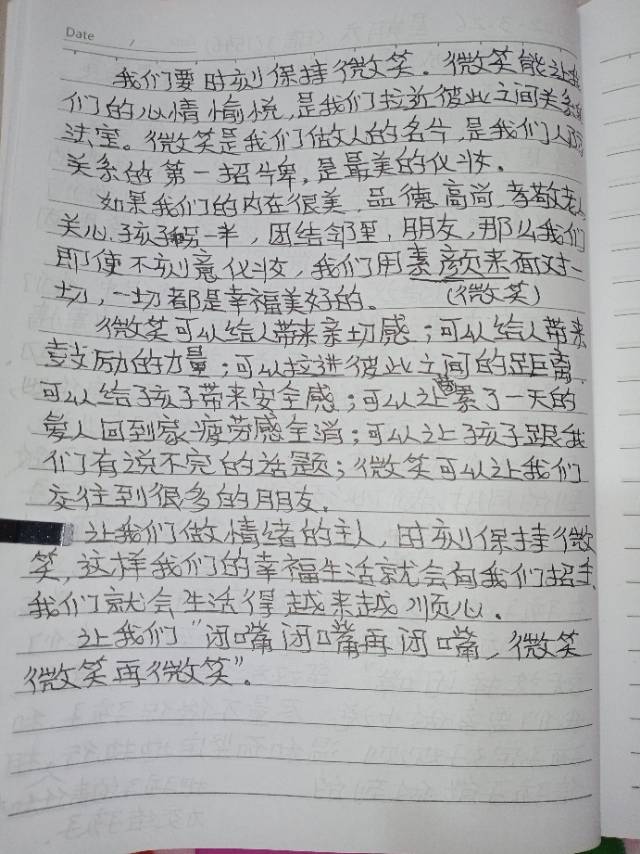 Date
我们要时刻保持微笑。微笑能让我
们的心情愉悦,是我们拉近彼此之间关系的
法宝。微笑是我们做人的名片,是我们人际
关系的第一招牌,是最美的化妆。
如果我们的内在很美,品德高尚,孝敬老人,
关心孩子,另一半,团结邻里,朋友,那么我们
即使不刻意化妆,我们用素颜来面对一
切,一切都是幸福美好的。(微笑)
微笑可以给人带来亲切感;可以给人带来
鼓励的力量;可以拉进彼此之间的距离,
可以给孩子带来安全感;可以让累了一天的
爱人回到家疲劳感全消;可以让孩子跟我
们有说不完的话题;微笑可以让我们
交往到很多的朋友。
让我们做情绪的主人,时刻保持微
笑,这样我们的幸福生活就会向我们招手,
我们就会生活得越来越顺心。
让我们“闭嘴闭嘴再闭嘴,微笑
微笑再微笑”。